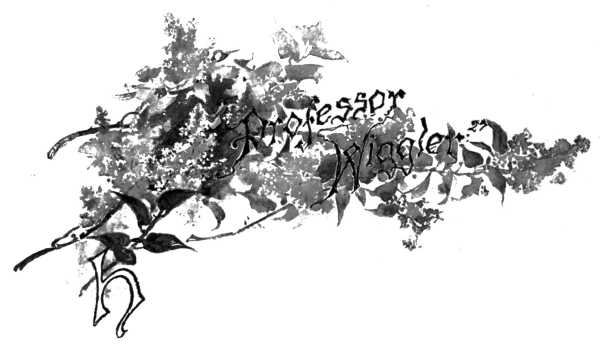 Professor
Wiggler
H